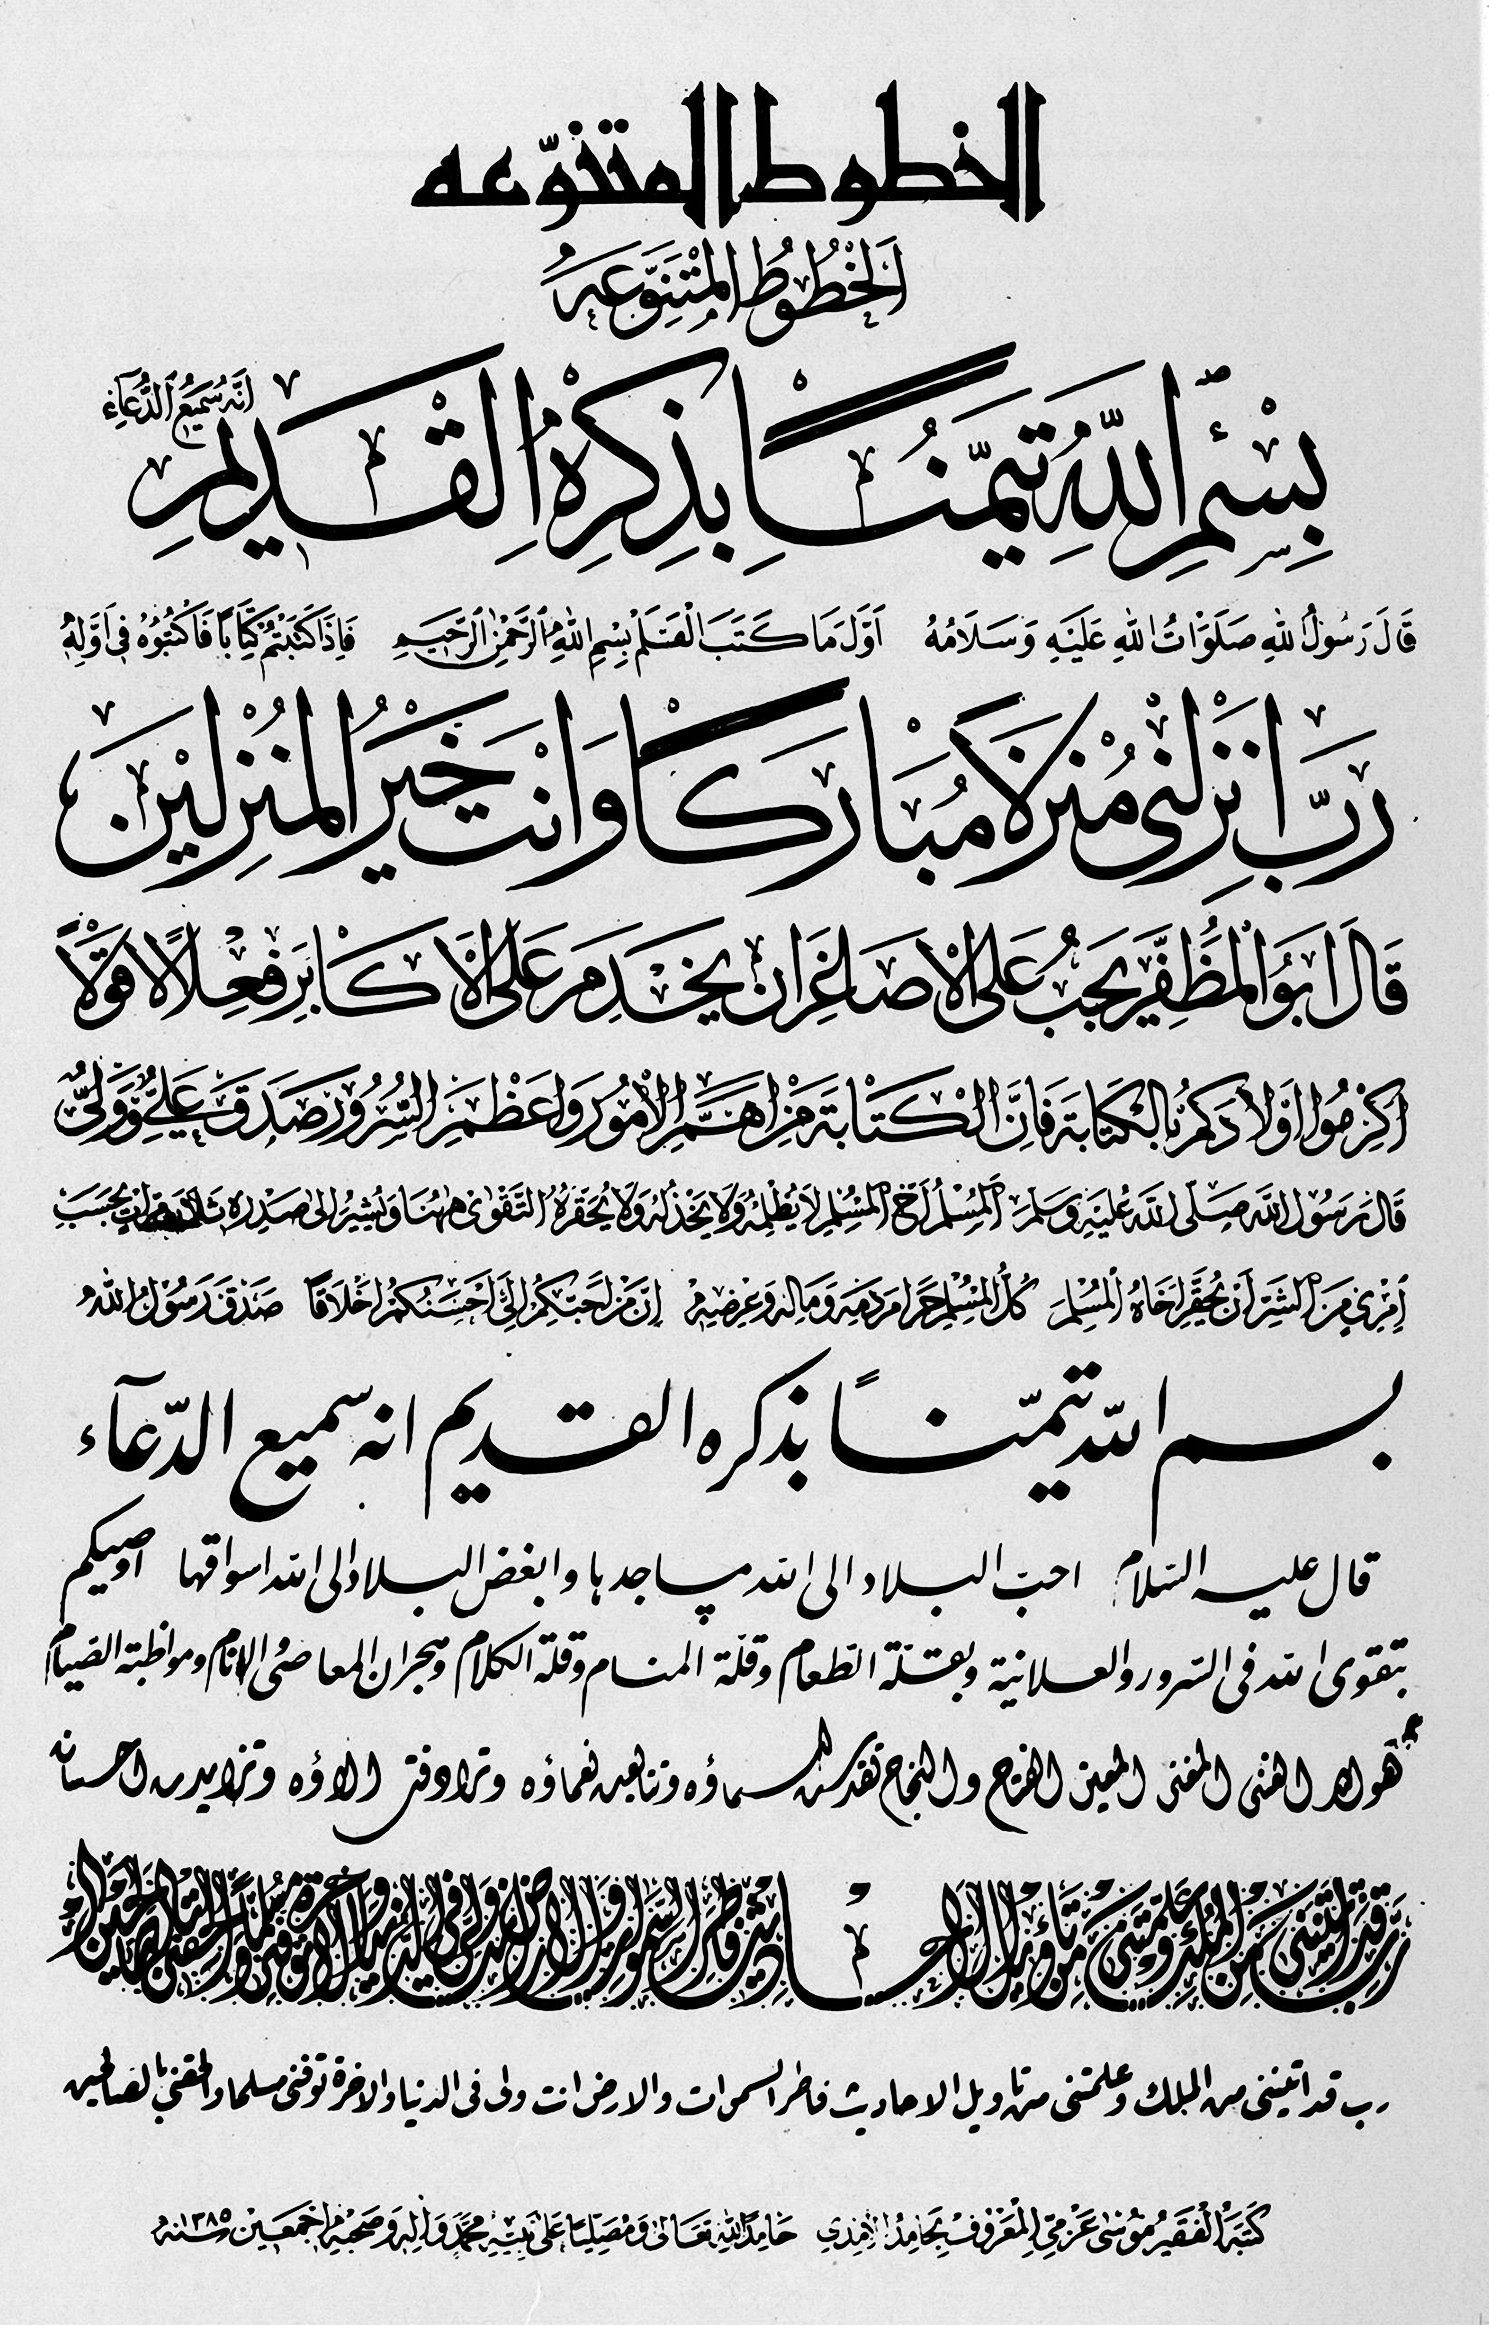 الخطوط المتنوّعه
اَلْخُطُوطُ الْمُتَنَوِّعَهُ
بِسْمِ اللّٰهِ تَيَمُّنًا بِذِكْرِهِ الْقَدِيمِ اِنَّهُ سَمِيعُ الدُّعَاءِ
قَالَ رَسُولُ اللهِ صَلَوَاتُ اللهِ عَلَيْهِ وَسَلَامُهُ اَوَّلُ مَا كَتَبَ الْقَلَمُ بِسْمِ اللهِ الرَّحْمٰنِ الرَّحِيمِ فَاِذَا كَتَبْتُمْ كِتَابًا فَاكْتُبُوهُ فِى اَوَّلِهِ
رَبِّ اَنْزِلْنِى مُنْزَلًا مُبَارَكًا وَاَنْتَ خَيْرُ الْمُنْزِلِينَ
قَالَ اَبُو الْمُظَفَّرِ يَجِبُ عَلَى الْاَصَاغِرِ اَنْ يَخْدِمَ عَلَى الْاَكَابِرِ فِعْلًا لَا قَوْلًا
اَكْرِمُوا اَوْلَادَكُمْ بِالْكِتَابَةِ فَاِنَّ الْكِتَابَةَ مِنْ اَهَمِّ الْاُمُورِ وَاَعْظَمِ السُّرُورِ صَدَقَ عَلِىٌّ وَلِىٌّ
قَالَ رَسُولُ اللّٰهِ صَلَّى اللّٰهُ عَلَيْهِ وَسَلَّمَ اَلْمُسْلِمُ اَخُ الْمُسْلِمِ لَا يَظْلِمُهُ وَلَا يَخْذُلُهُ وَلَا يُحَقِّرُهُ اَلتَّقْوٰى هٰهُنَا وَيُشِيرُ اِلٰى صَدْرِهِ ثَلَاثَ مَرَّاتٍ بِحَسْبِ
امْرِئٍ مِنَ الشَّرِّ اَنْ يُحَقِّرَ اَخَاهُ الْمُسْلِمَ كُلُّ الْمُسْلِمِ حَرَامٌ دَمُهُ وَمَالُهُ وَعِرْضُهُ اِنَّ مِنْ اَحَبِّكُمْ اِلَىَّ اَحْسَنُكُمْ اَخْلَاقًا صَدَقَ رَسُولُ اللّٰهِ
بسم الله تيمّنًا بذكره القديم انه سميع الدّعآء
قال عليه السّلام احبّ البلاد الى الله مساجدها وابغض البلاد الى الله اسواقها اوصيكم
بتقوى الله فى السّرور والعلانية وبقلّة الطّعام وقلّة المنام وقلّة الكلام وهجران المعاصى الاثام ومواظبة الصّيام
هو الله الغنى المغنى المعين الفتاح والنجاح تقدست اسماؤه وتتابعت نعماؤه وترادفت الاؤه وتزايدت احسانه
رَبِّ قَدْ اٰتَيْتَنِى مِنَ الْمُلْكِ وَعَلَّمْتَنِى مِنْ تَأْوِيلِ الْاَحَادِيثِ فَاطِرَ السَّمٰوَاتِ وَالْاَرْضِ اَنْتَ وَلِيِّى فِى الدُّنْيَا وَالْاٰخِرَةِ تَوَفَّنِى مُسْلِمًا وَاَلْحِقْنِى بِالصَّالِحِينَ
رب قد اتيتنى من الملك وعلمتنى من تاويل الاحاديث فاطر السموات والارض انت ولى فى الدنيا والاخرة توفنى مسلما والحقنى بالصالحين
كَتَبَهُ الْفَقِيرُ مُوسٰى عَزْمِى الْمَعْرُوفُ بِحَامِدِ الْاٰمِدِى حَامِدًا لِلّٰهِ تَعَالٰى وَمُصَلِّيًا عَلٰى نَبِيِّهِ مُحَمَّدٍ وَاٰلِهِ وَصَحْبِهِ اَجْمَعِينَ سنه ١٣٨٥